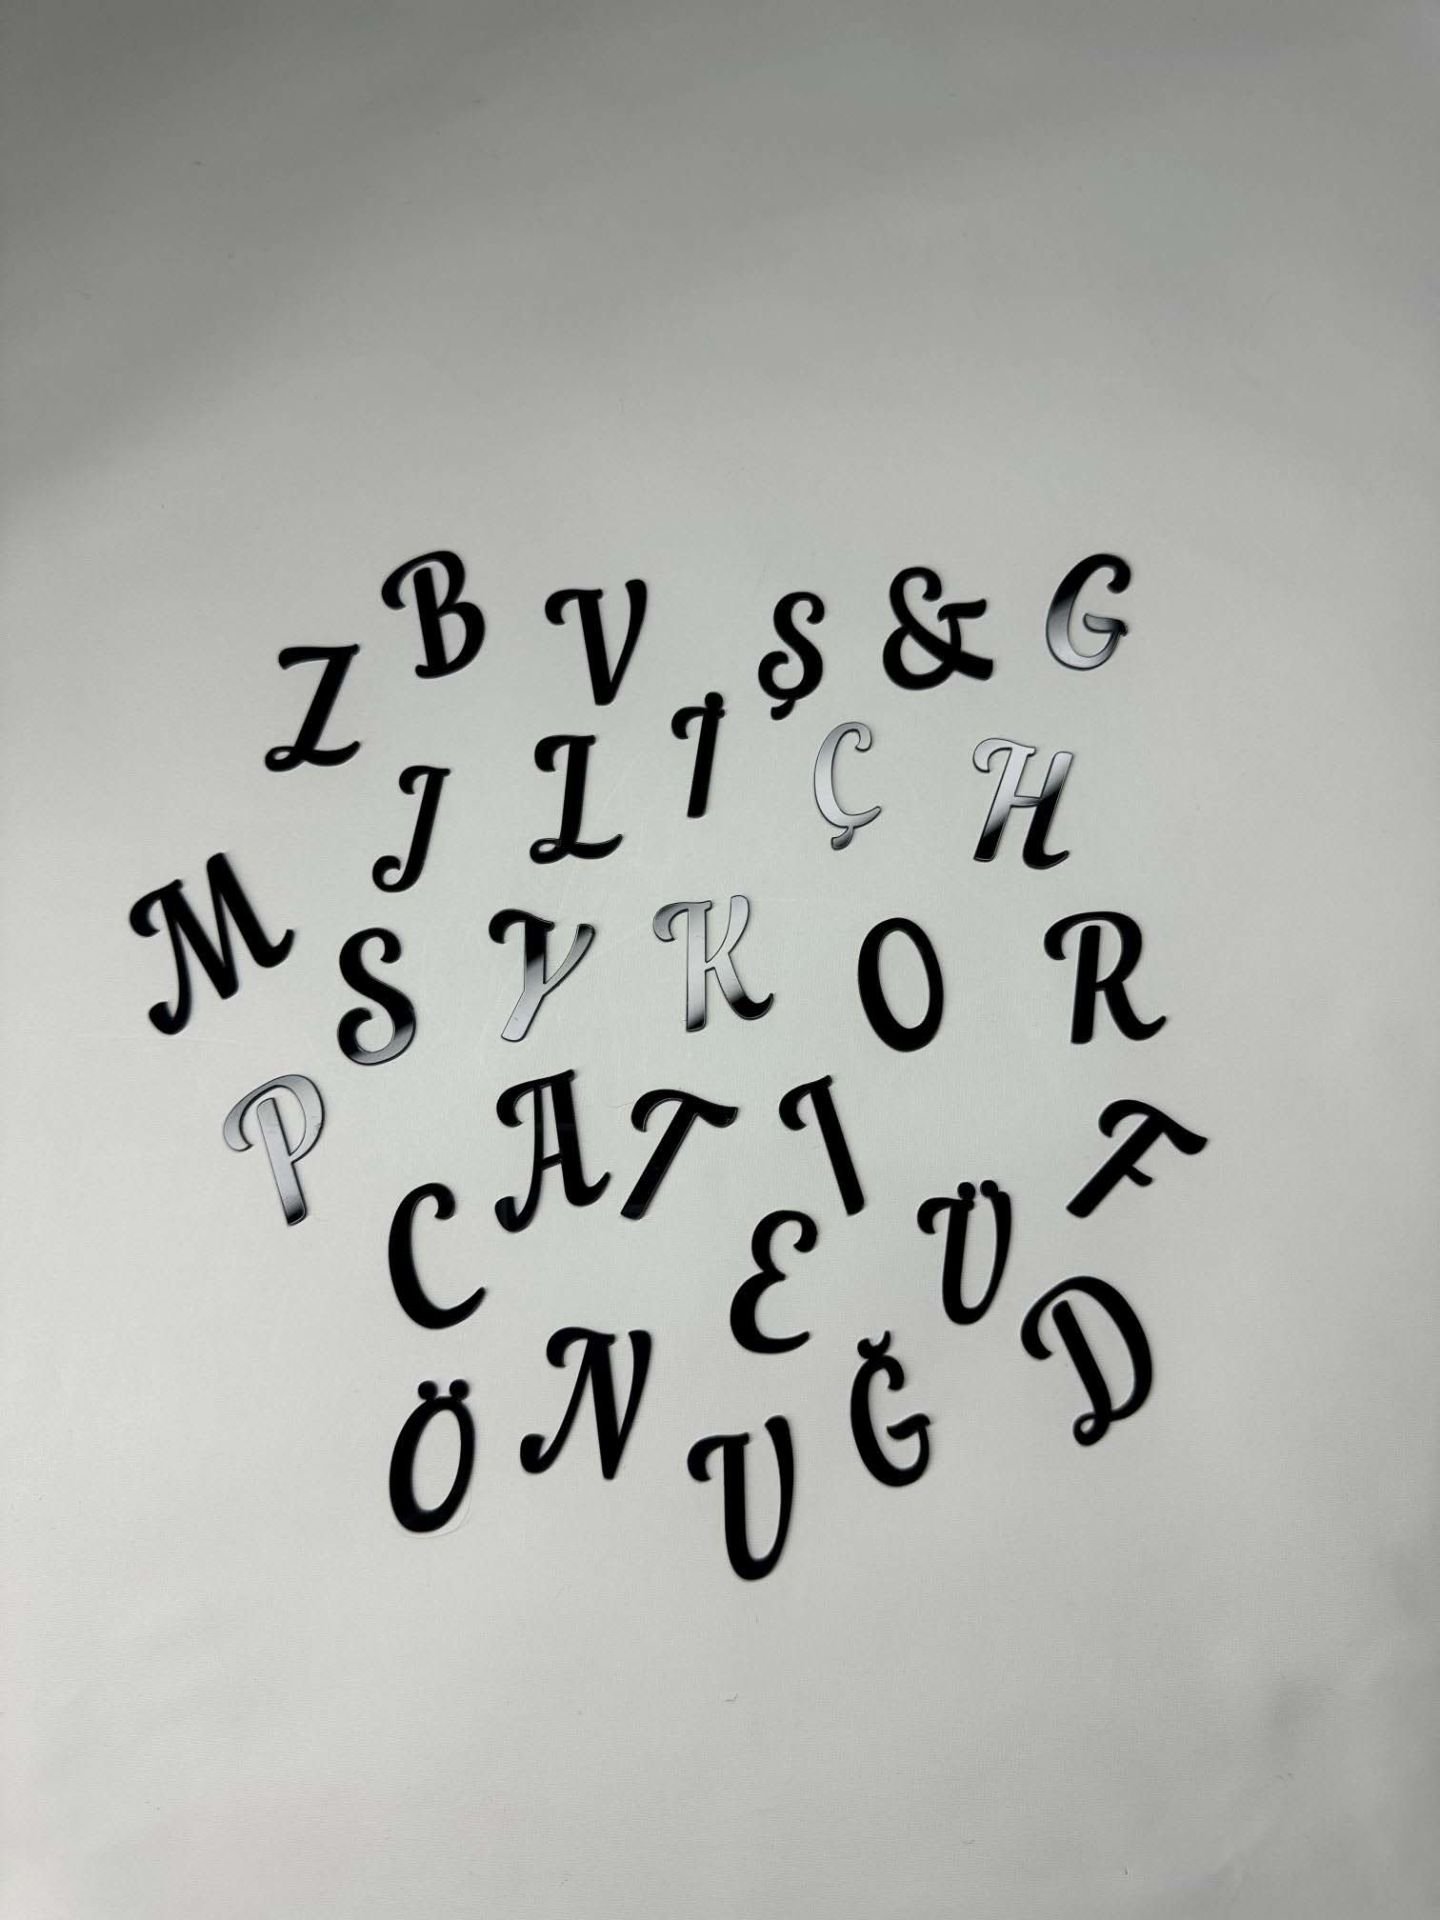 Z B V Ş & G
J L İ Ç H
M S Y K O R
P C A T I F
E Ü D
Ö N U Ğ